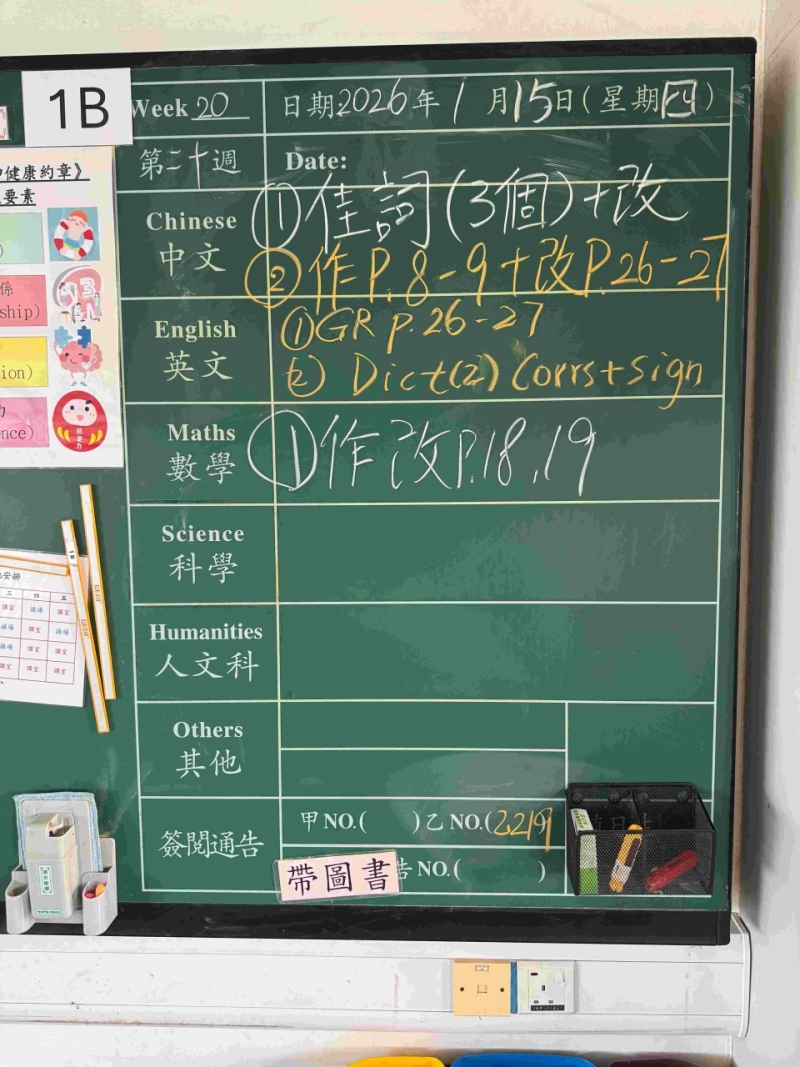 1B
Week 20
日期:2026年1月15日(星期四)
第二十週
Date:
健康約章》
要素
Chinese
中文
①佳詞(3個)+改
②作P.8-9+改P.26-27
係
ship)
English
英文
①GR p.26-27
② Dict(2) Corrs+sign
ion)
力
nce)
Maths
數學
①作改P.18,19
Science
科學
Humanities
人文科
三 四 五
Others
其他
簽閱通告
甲NO.( )乙NO.(2219
告NO.( )
帶圖書